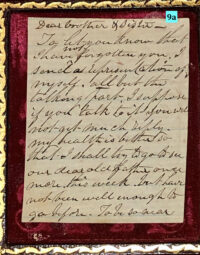 9a
Dear brother & Sister—
To let you know that
I have not forgotten you, I
send a representation of
myself. all but the
talking part. I suppose
if you talk to it you will
not get much reply.
my health is better so
that I shall try to go & see
our dear old father once
more this week. but have
not been well enough to
go before. To be so near